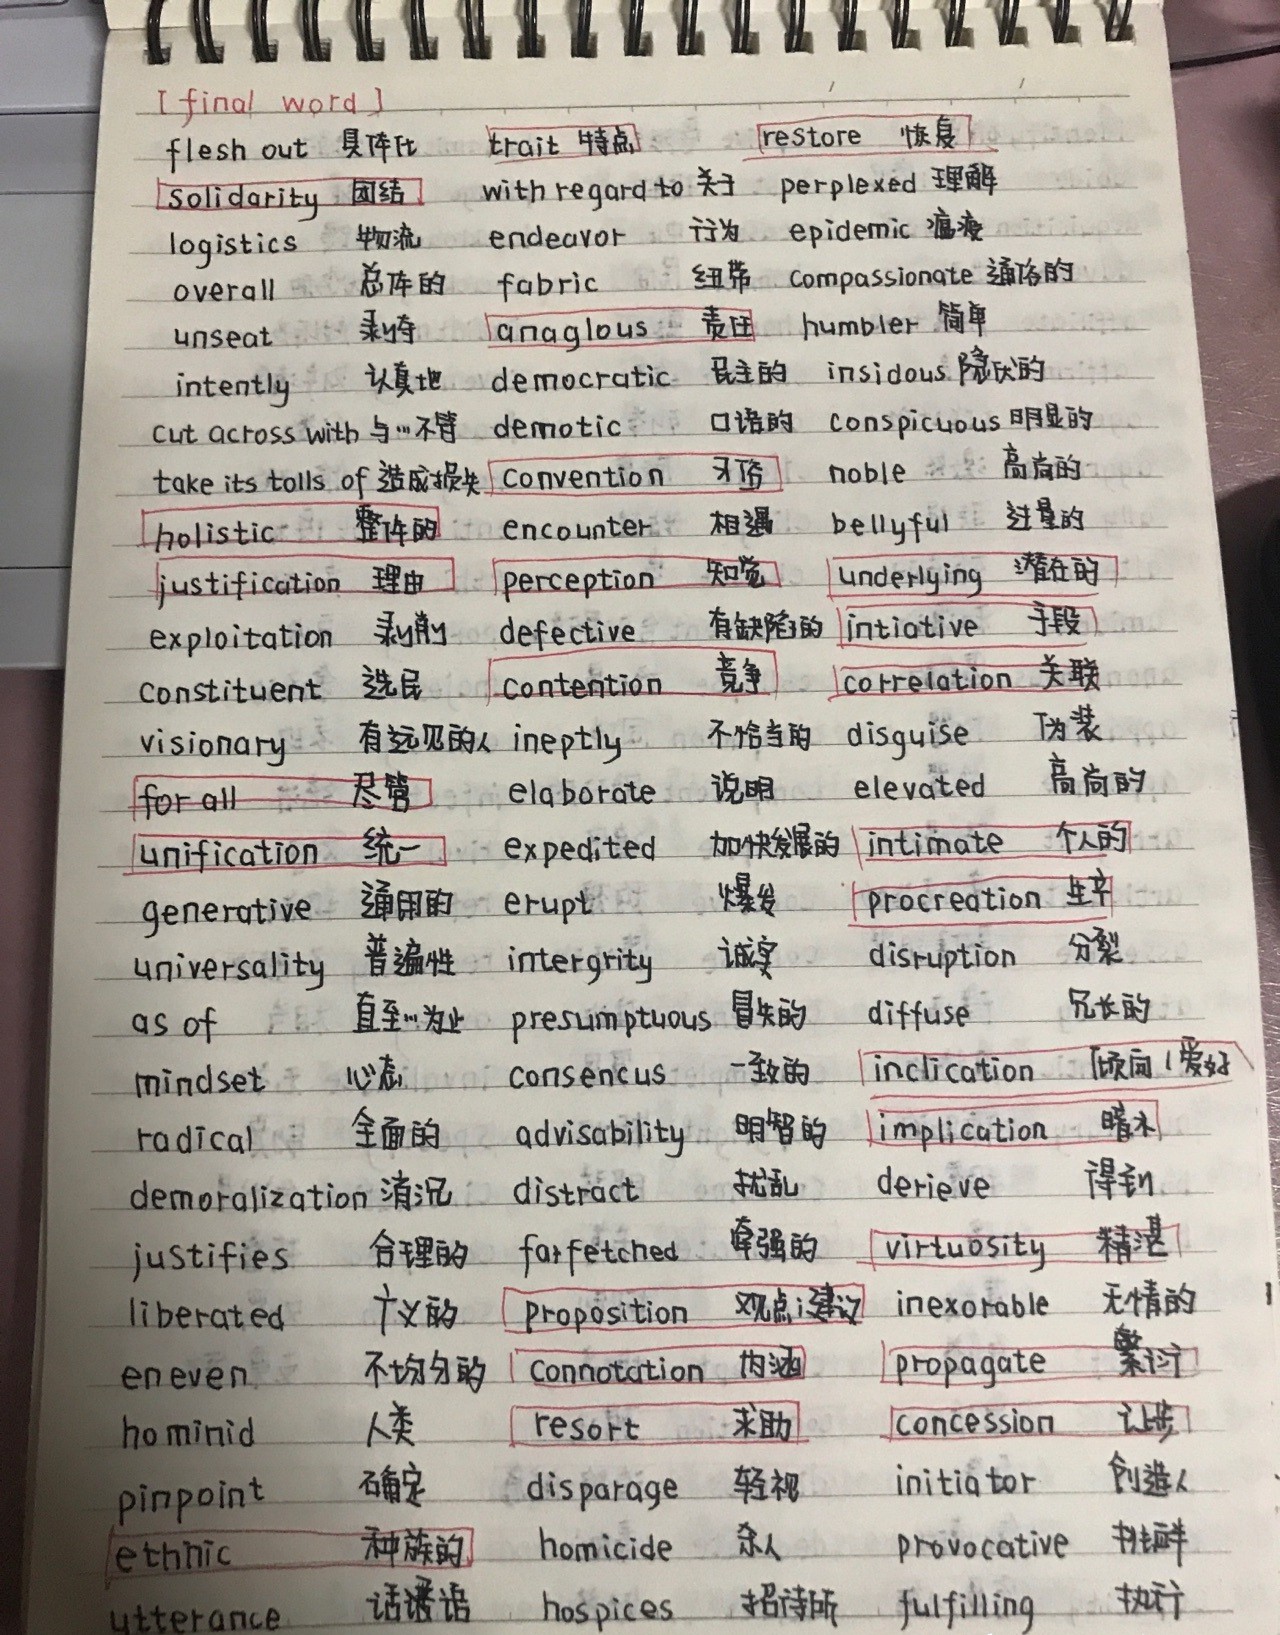 [final word]
flesh out 具体化 trait 特点 restore 恢复
solidarity 团结 with regard to 关于 perplexed 理解
logistics 物流 endeavor 行为 epidemic 瘟疫
overall 总体的 fabric 纽带 compassionate 通俗的
unseat 剥夺 anaglous 责任 humbler 简单
intently 认真地 democratic 民主的 insidous 隐伏的
cut across with 与…不管 demotic 口语的 conspicuous 明显的
take its tolls of 造成损失 convention 习俗 noble 高尚的
holistic 整体的 encounter 相遇 bellyful 过量的
justification 理由 perception 知觉 underlying 潜在的
exploitation 剥削 defective 有缺陷的 intiative 手段
constituent 选民 contention 竞争 correlation 关联
visionary 有远见的人 ineptly 不恰当的 disguise 伪装
for all 尽管 elaborate 说明 elevated 高尚的
unification 统一 expedited 加快发展的 intimate 个人的
generative 通用的 erupt 爆发 procreation 生产
universality 普遍性 intergrity 诚实 disruption 分裂
as of 直至…为止 presumptuous 冒失的 diffuse 冗长的
mindset 心态 consencus 一致的 inclication 倾向/爱好
radical 全面的 advisability 明智的 implication 暗示
demoralization 消沉 distract 扰乱 derieve 得到
justifies 合理的 farfetched 牵强的 virtuosity 精湛
liberated 广义的 proposition 观点;建议 inexorable 无情的
eneven 不均匀的 connotation 内涵 propagate 繁衍
hominid 人类 resort 求助 concession 让步
pinpoint 确定 disparage 轻视 initiator 创造人
ethnic 种族的 homicide 杀人 provocative 挑衅
utterance 话语 hospices 招待所 fulfilling 执行